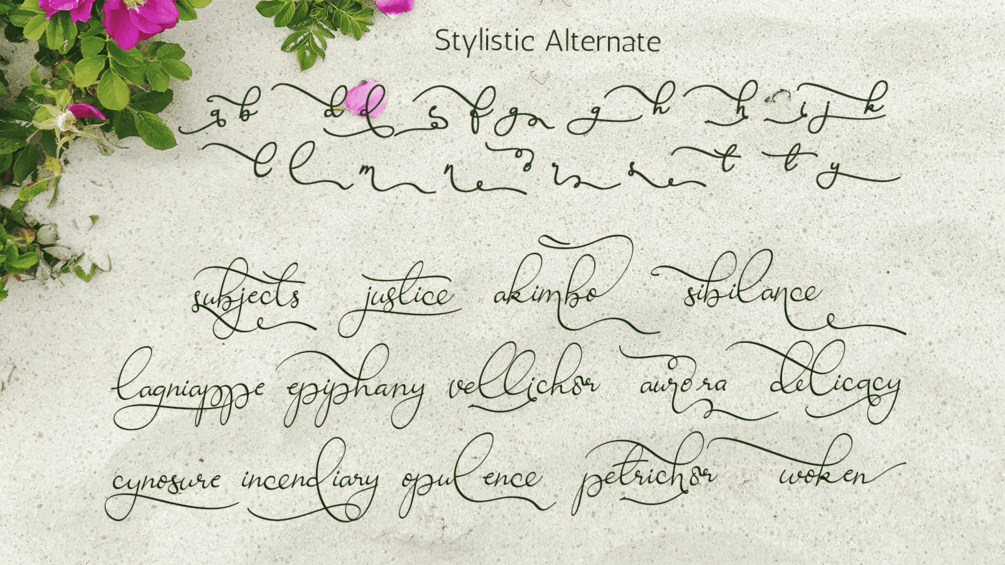 Stylistic Alternate
a b d d s f g g h h i j k
l l m n o r s t t y
subjects justice akimbo sibilance
lagniappe epiphany vellichor aurora delicacy
cynosure incendiary opulence petrichor woken